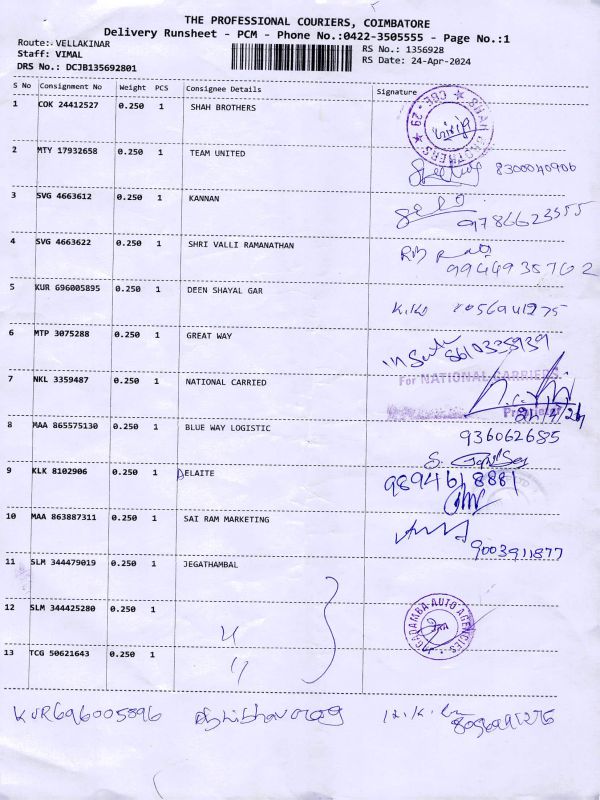 THE PROFESSIONAL COURIERS, COIMBATORE
Delivery Runsheet - PCM - Phone No.:0422-3505555 - Page No.:1
Route: VELLAKINAR
Staff: VIMAL
DRS No.: DCJB135692801
RS No.: 1356928
RS Date: 24-Apr-2024
S No Consignment No Weight PCS Consignee Details Signature
1 COK 24412527 0.250 1 SHAH BROTHERS
SHAH BROTHERS ★ CBE - 29 ★
2 MTY 17932658 0.250 1 TEAM UNITED
8300040906
3 SVG 4663612 0.250 1 KANNAN
9786623555
4 SVG 4663622 0.250 1 SHRI VALLI RAMANATHAN
9944935702
5 KUR 696005895 0.250 1 DEEN SHAYAL GAR
6 MTP 3075288 0.250 1 GREAT WAY
8610335939
7 NKL 3359487 0.250 1 NATIONAL CARRIED
For NATIONAL CARRIERS
Proprietor
8 MAA 865575130 0.250 1 BLUE WAY LOGISTIC
936062685
9 KLK 8102906 0.250 1 DELAITE
9894618881
10 MAA 863887311 0.250 1 SAI RAM MARKETING
9003911877
11 SLM 344479019 0.250 1 JEGATHAMBAL
12 SLM 344425280 0.250 1 "
JAGADAMBA AUTO AGENCIES
13 TCG 50621643 0.250 1 "
KUR696005896